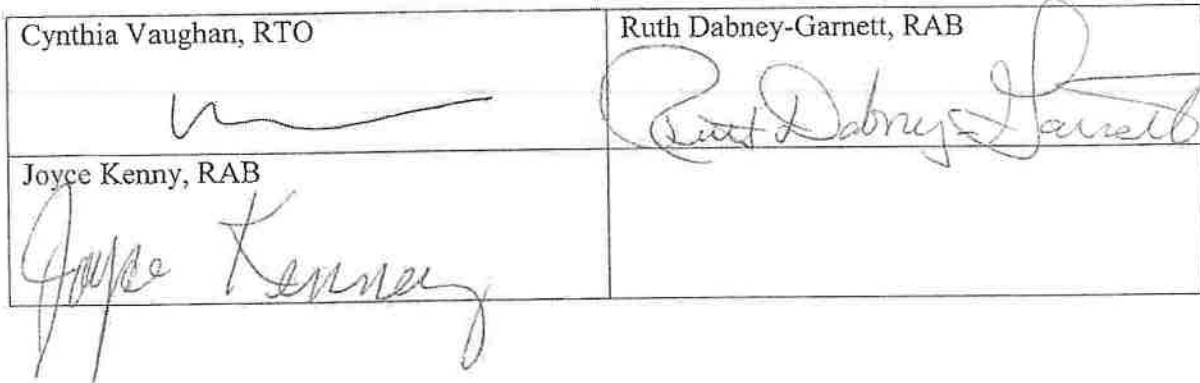 Cynthia Vaughan, RTO
Ruth Dabney-Garnett, RAB
Ruth Dabney-Garnett
Joyce Kenny, RAB
Joyce Kenney